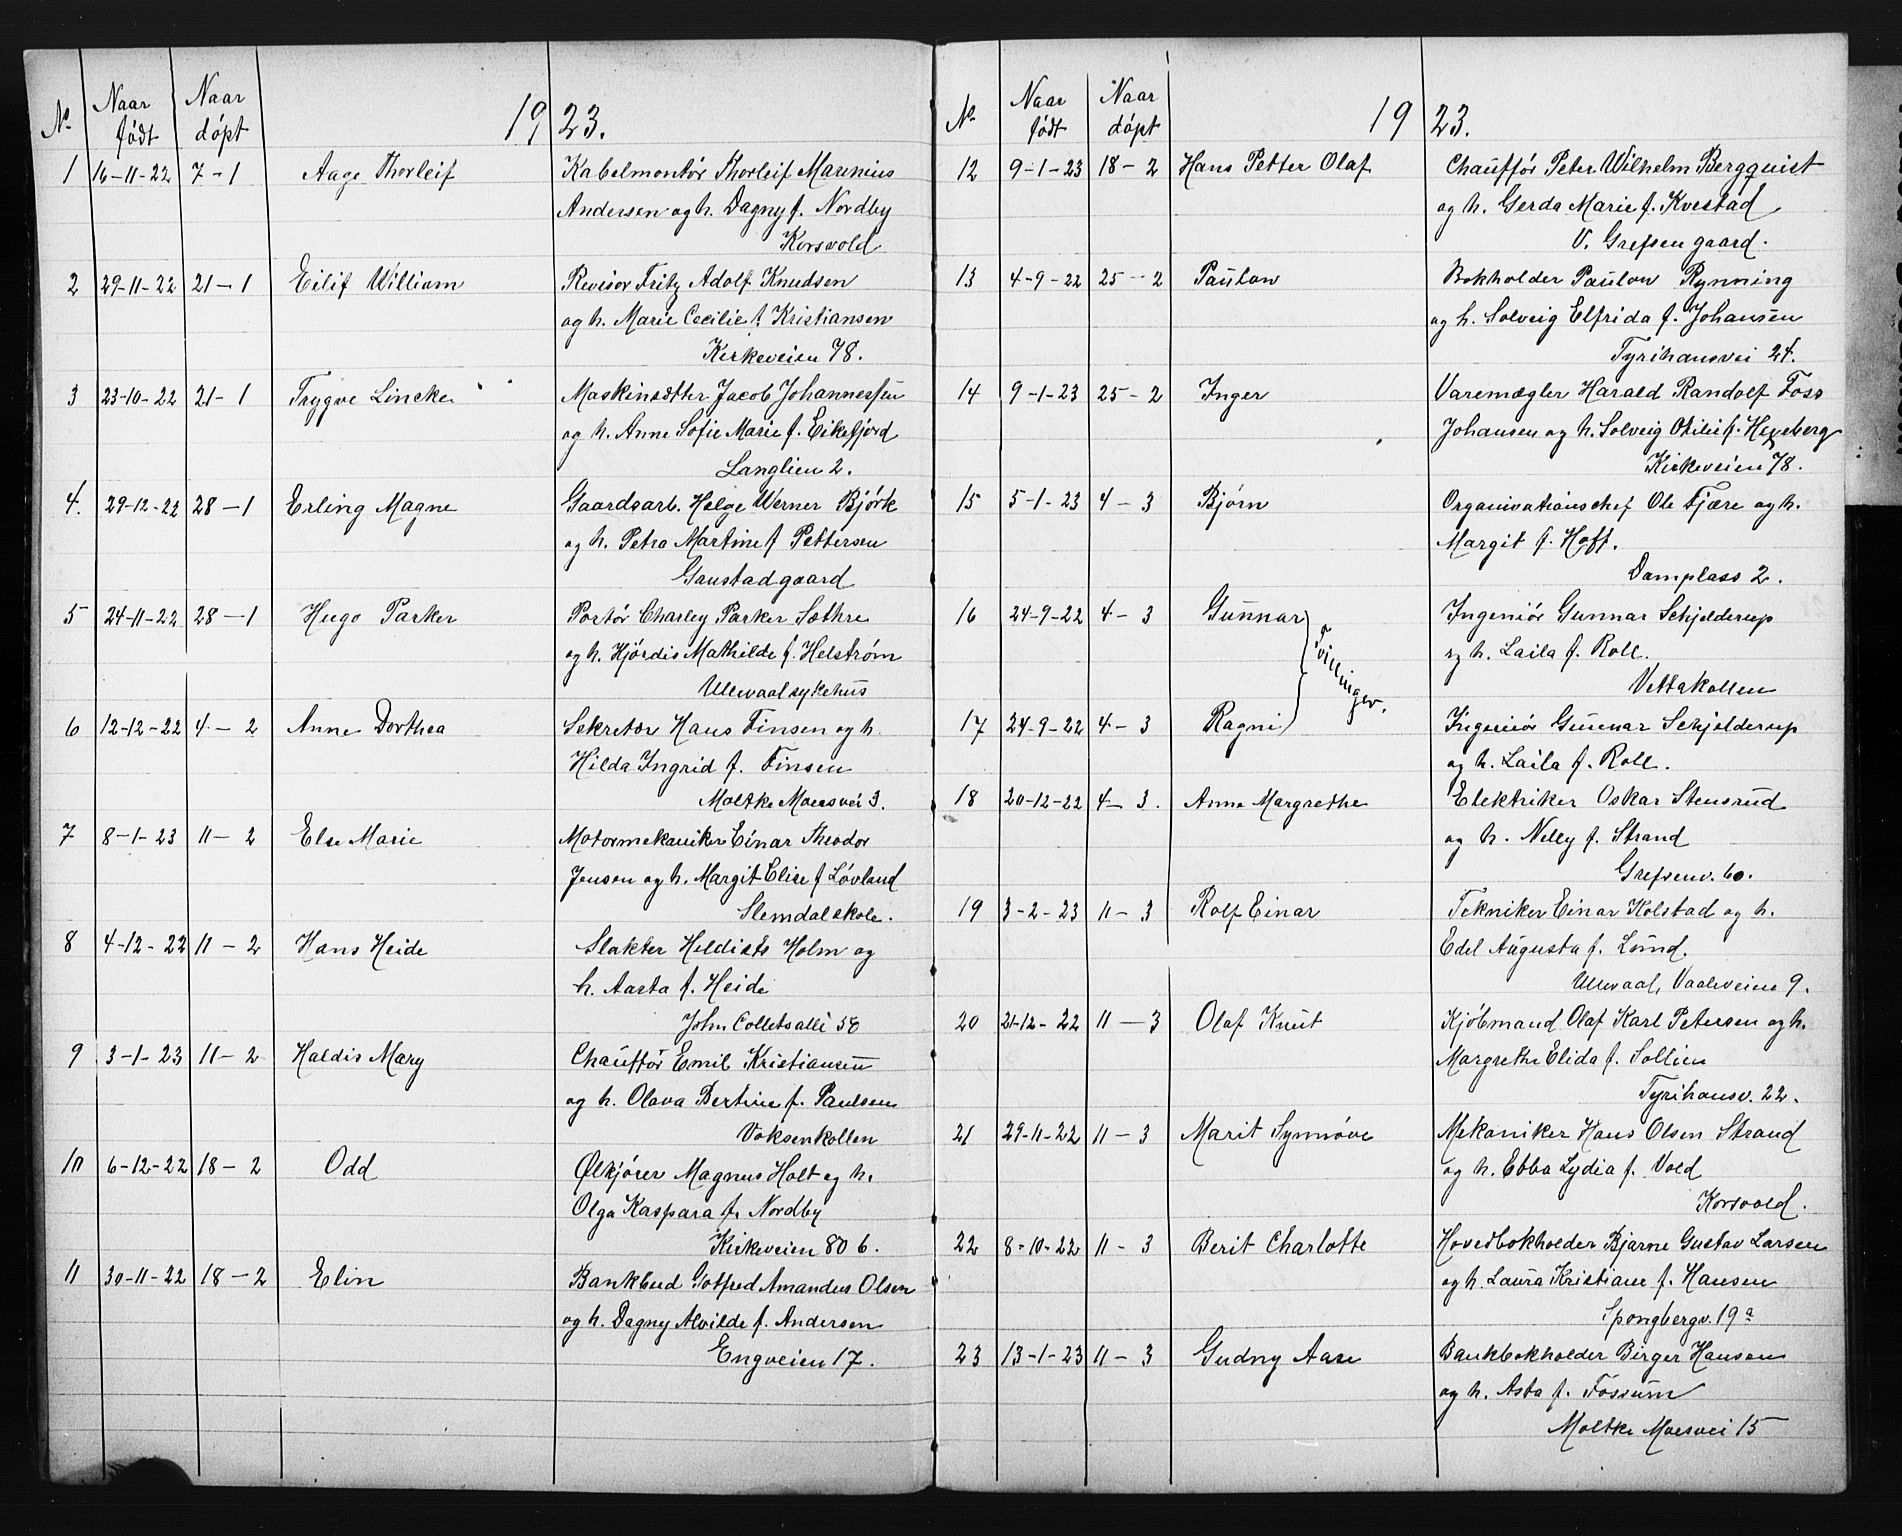 No. Naar født Naar døpt 1923.
1 16-11-22 7-1 Aage Thorleif Kabelmontør Thorleif Marinius
Andersen og h. Dagny f. Nordby
Korsvold
2 29-11-22 21-1 Eilif William Revisor Fritz Adolf Knudsen
og h. Marie Cecilie f. Kristiansen
Kirkeveien 78.
3 23-10-22 21-1 Trygve Lincke Maskinsætter Jacob Johannessen
og h. Anne Sofie Marie f. Eikefjord
Langlien 2.
4. 29-12-22 28-1 Erling Magne Gaardsarb. Helge Werner Bjørk
og h. Petra Martine f Pettersen
Gaustad gaard
5 24-11-22 28-1 Hugo Parker Portør Charley Parker Sæthre
og h. Hjørdis Mathilde f. Helstrøm
Ullevaal sykehus
6 12-12-22 4-2 Anne Dorthea Sekretær Hans Finsen og h.
Hilda Ingrid f. Finsen
Moltke Moesvei 3.
7 8-1-23 11-2 Else Marie Motormekaniker Einar Theodor
Jensen og h. Margit Elise f Løvland
Slemdal skole.
8 4-12-22 11-2 Hans Heide Slakter Holm og
h. Aasta f. Heide
John Colletsallé 58
9 3-1-23 11-2 Haldis Mary Chauffør Emil Kristiansen
og h. Olava Bertine f. Paulsen
Voksenkollen
10 6-12-22 18-2 Odd Ølkjører Magnus Holt og h.
Olga Kaspara f. Nordby
Kirkeveien 80 b.
11 30-11-22 18-2 Elin Bankbud Gotfred Amandus Olsen
og h. Dagny Alvilde f. Andersen
Engveien 17.
No. Naar født Naar døpt 1923.
12 9-1-23 18-2 Hans Petter Olaf Chauffør Peter Wilhelm Bergquist
og h. Gerda Marie f. Kvestad
V. Grefsen gaard.
13 4-9-22 25-2 Paulow Bokholder Paulow Rynning
og h. Solveig Elfrida f. Johansen
Tyrihansvei 24.
14 9-1-23 25-2 Inger Varemægler Harald Randolf Foss
Johansen og h. Solveig Otilie f. Hexeberg
Kirkeveien 78.
15 5-1-23 4-3 Bjørn Organisationschef Ole Fjære og h.
Margit f. Hoft.
Damplass 2.
16 24-9-22 4-3 Gunnar Ingeniør Gunnar Schjelderup
og h. Laila f. Roll.
Tvillinger.
Vettakollen
17 24-9-22 4-3 Ragni Ingeniør Gunnar Schjelderup
og h. Laila f. Roll.
18 20-12-22 4-3. Anna Margrethe Elektriker Oskar Stensrud
og h. Nelly f. Strand
Grefsenv. 60.
19 3-2-23 11-3 Rolf Einar Tekniker Einar Kolstad og h.
Edel Augusta f. Lund.
Ullevaal, Vaaleveien 9.
20 21-12-22 11-3 Olaf Knut Kjøbmand Olaf Karl Petersen og h.
Margrethe Elida f. Sollien
Tyrihansv. 22.
21 29-11-22 11-3 Marit Synnøve Mekaniker Hans Olsen Strand
og h. Ebba Lydia f. Vold
Korsvold.
22 8-10-22 11-3 Berit Charlotte Hovedbokholder Bjarne Gustav Larsen
og h. Laura Kristiane f. Hansen
Spongbergv. 19 a
23 13-1-23 11-3 Gudny Aase Bankbokholder Birger Hansen
og h. Asta f. Fossum
Moltke Moesvei 15